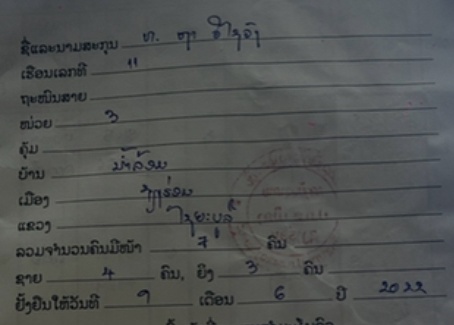 ຊື່ແລະນາມສະກຸນ ທ. ຫາ
ເຮືອນເລກທີ 11
ຖະໜົນສາຍ
ໜ່ວຍ 3
ຄຸ້ມ
ບ້ານ ນ້ຳລ້ອມ
ເມືອງ
ແຂວງ ໄຊຍະບູລີ
ລວມຈຳນວນຄົນມີໜ້າ 7 ຄົນ
ຊາຍ 4 ຄົນ, ຍິງ 3 ຄົນ
ຢັ້ງຢືນໃຫ້ວັນທີ 9 ເດືອນ 6 ປີ 2022